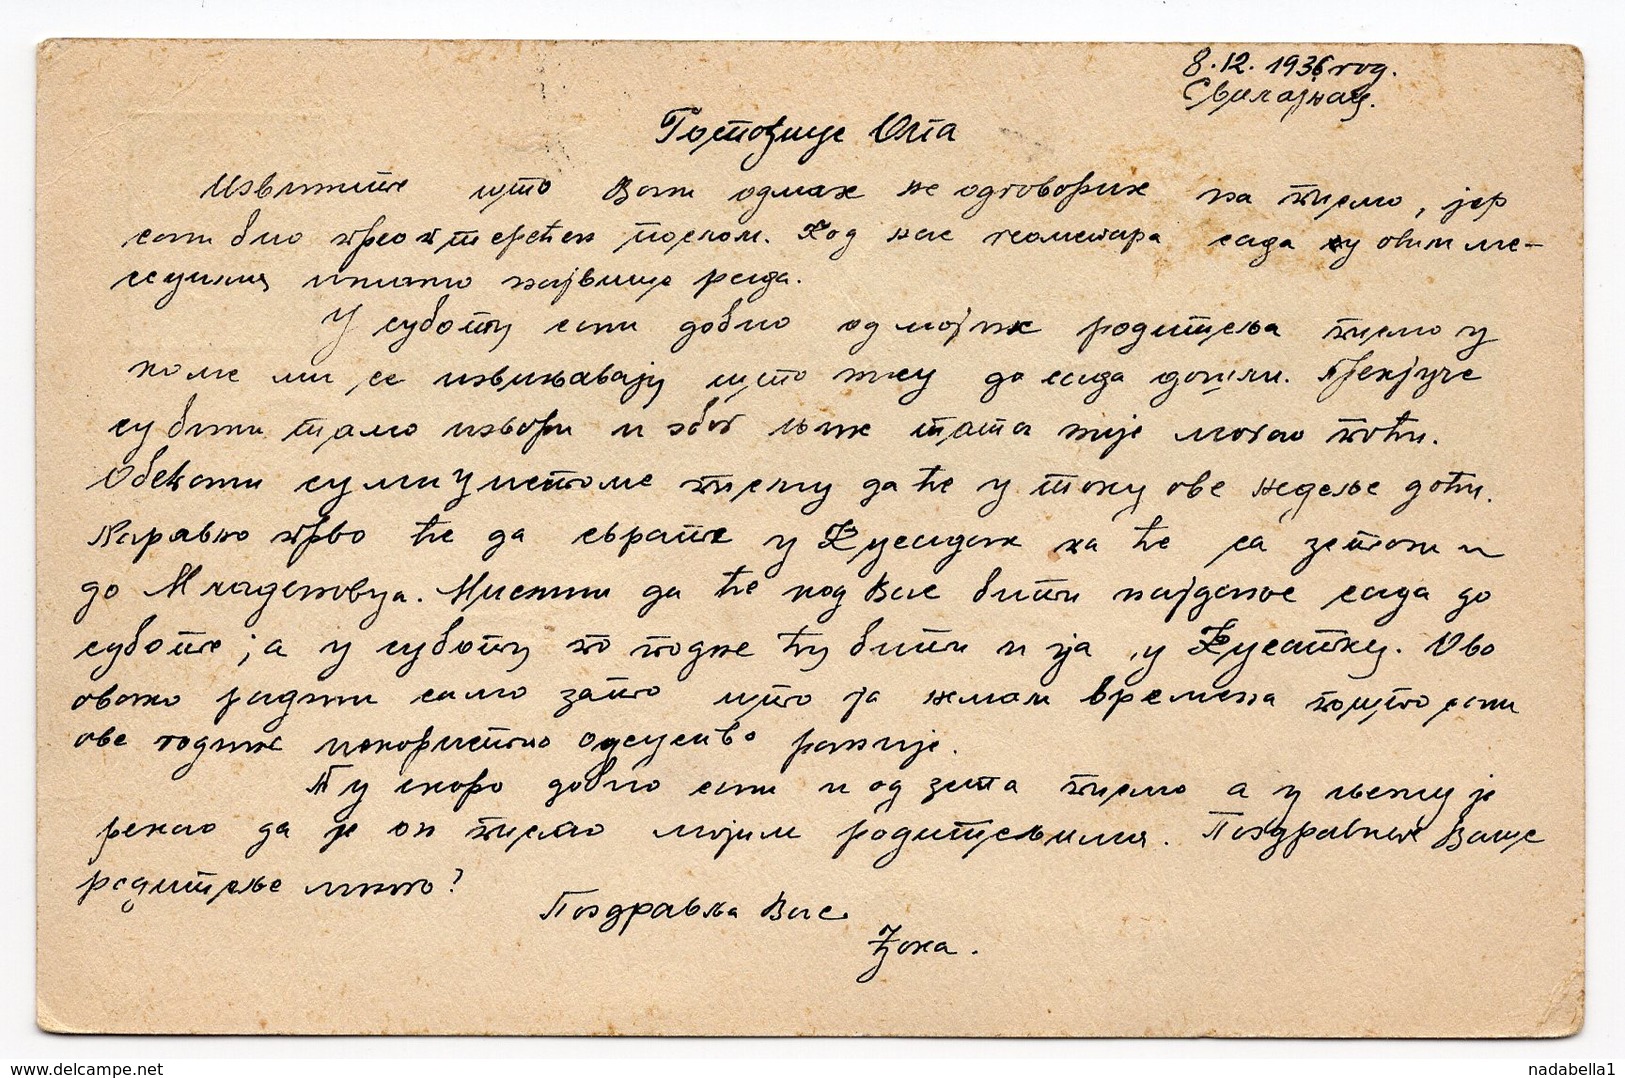 8.12.1936 год.
Свилајнац.
Госпођице Олга
Извините што Вам одмах не одговорих на писмо, јер
сам био преоптерећен послом. Код нас геометара сада су овим ме-
сецима имамо највише рада.
У суботу сам добио од мојих родитеља писмо у
коме ми се извињавају што нису до сада дошли. Прекјуче
су били тамо избори и због њих тата није могао поћи.
Обећали су ми у истоме писму да ће у току ове недеље доћи.
Наравно прво ће да сврате у Кусадак па ће са зетом и
до Младеновца. Мислим да ће код Вас бити најдаље сада до
суботе; а у суботу по подне ћу бити и ја у Кусатку. Ово
овако радим само зато што ја немам времена пошто сам
ове године искористио одсуство раније.
Ту скоро добио сам и од зета писмо а у њему је
рекао да је он писао мојим родитељима. Поздравите Ваше
родитеље много?
Поздравља Вас
Ђока.
nadabella1